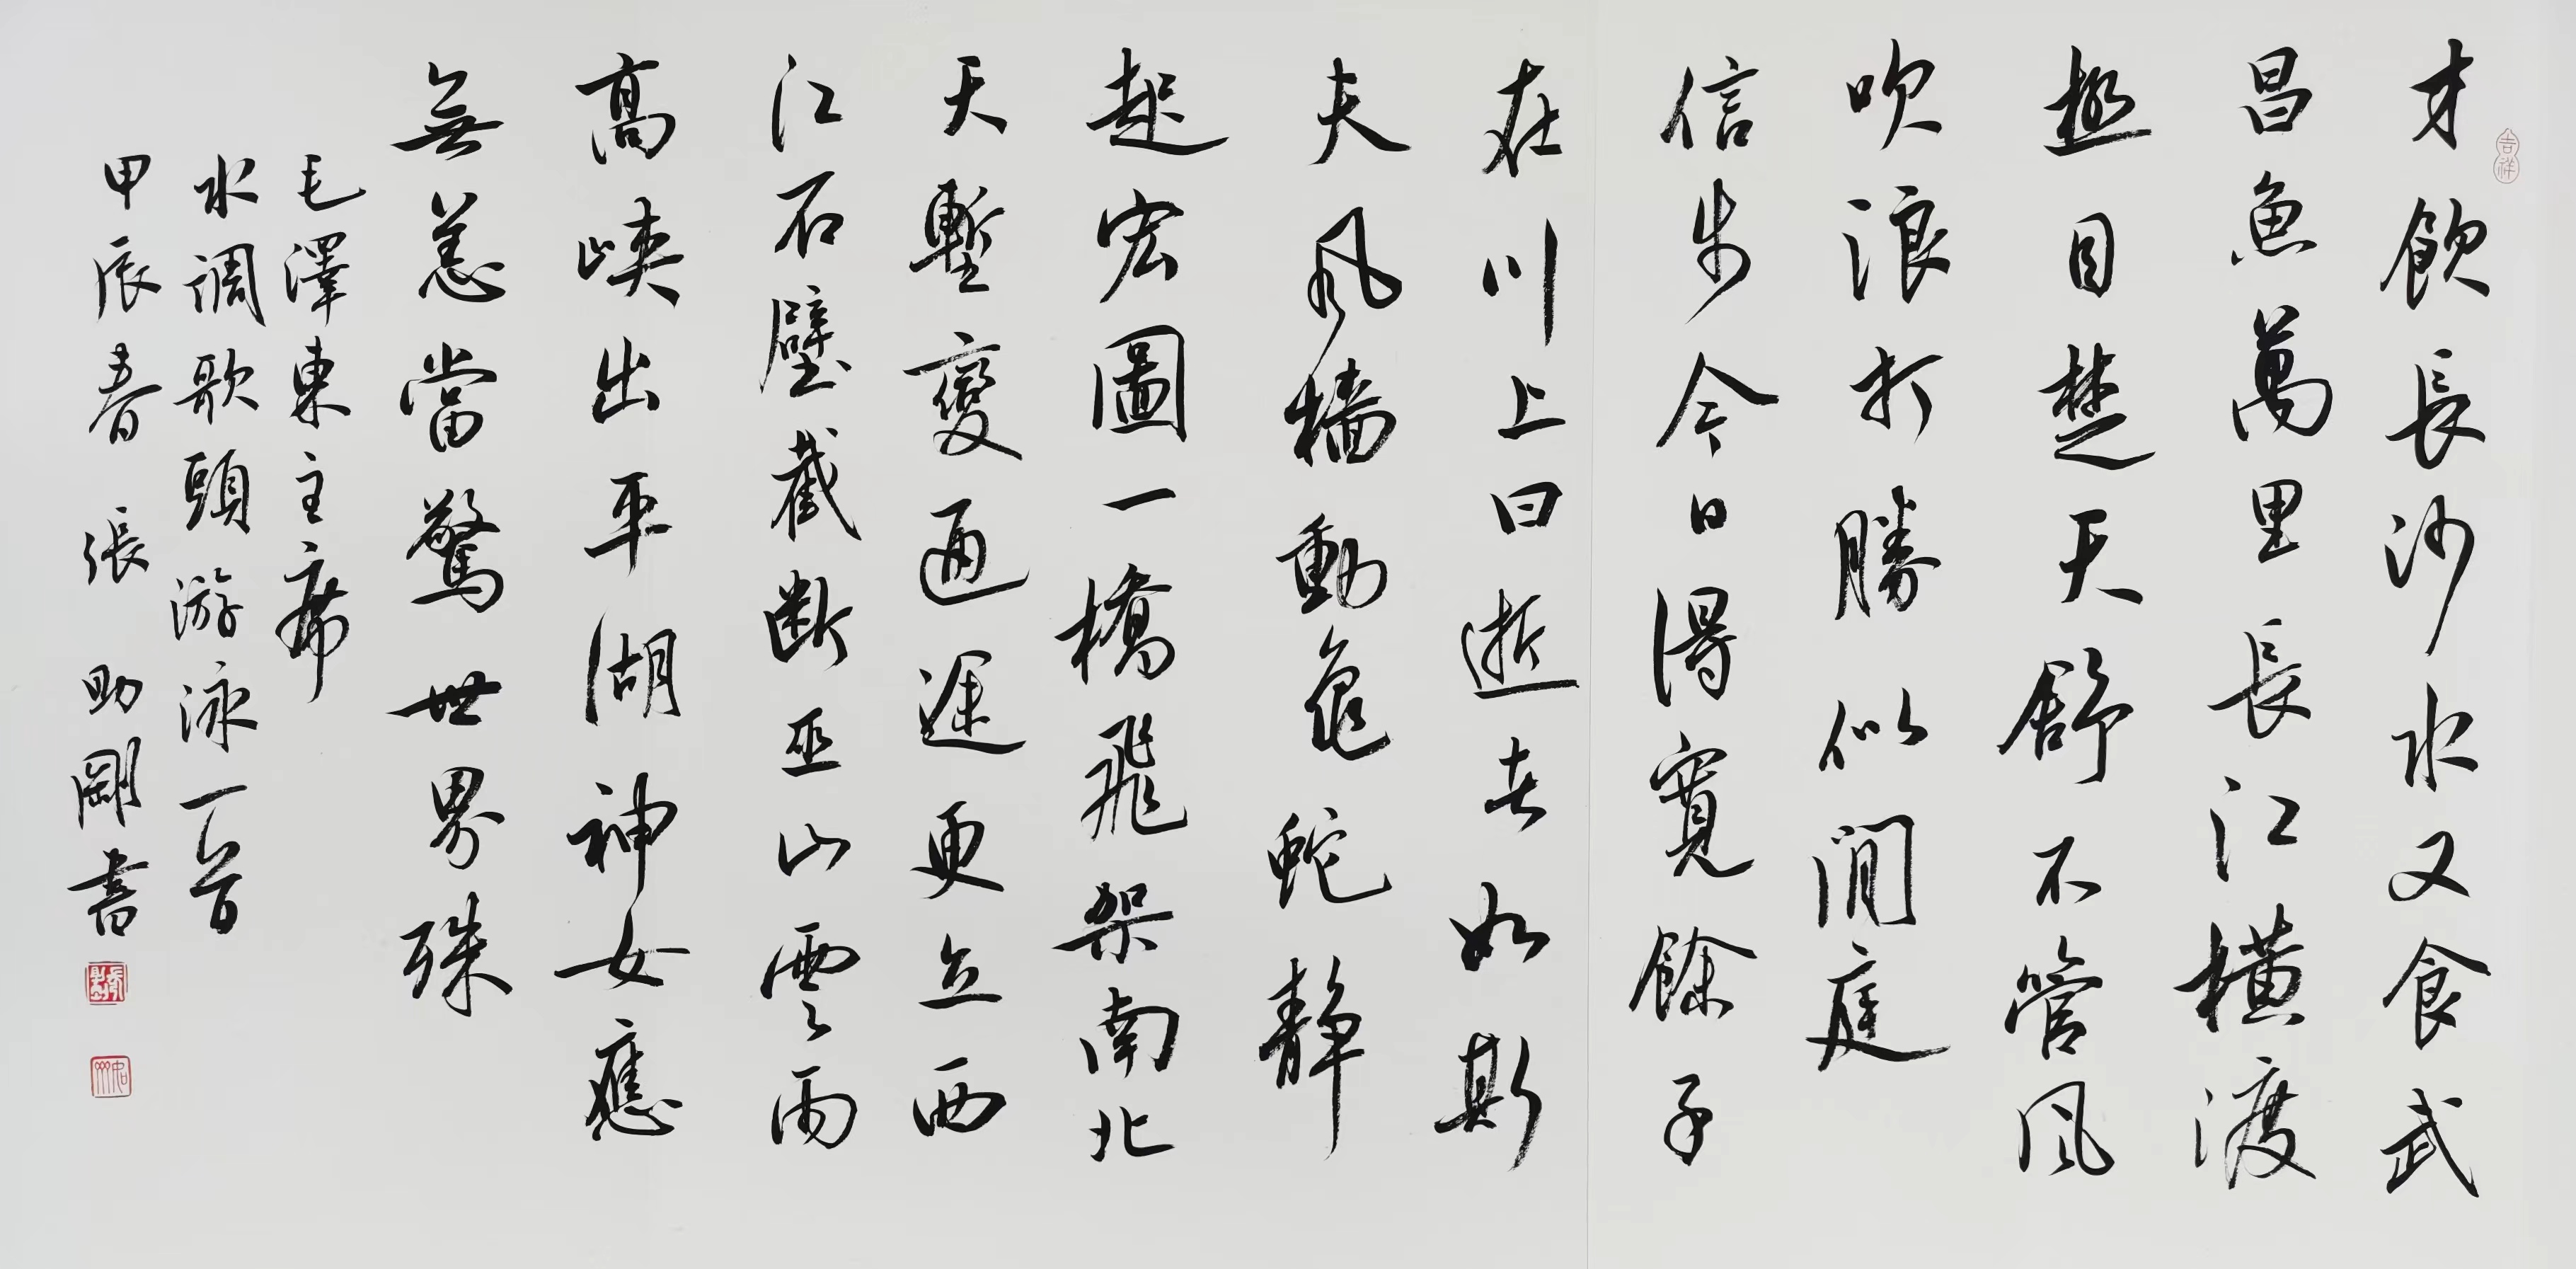 吉祥
才飲長沙水又食武
昌魚萬里長江橫渡
極目楚天舒不管風
吹浪打勝似閒庭
信步今日得寬餘子
在川上曰逝者如斯
夫風檣動龜蛇靜
起宏圖一橋飛架南北
天塹變通途更立西
江石壁截斷巫山雲雨
高峽出平湖神女應
無恙當驚世界殊
毛澤東主席
水調歌頭游泳一首
甲辰春 張助剛書